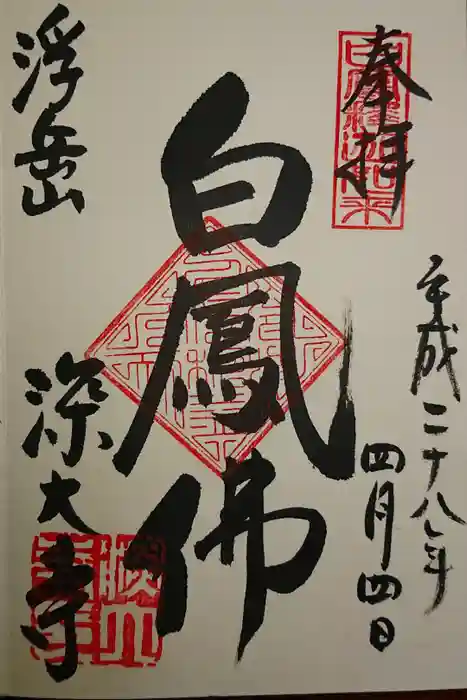 奉拝
平成二十八年
四月四日
白鳳佛
浮岳
深大寺